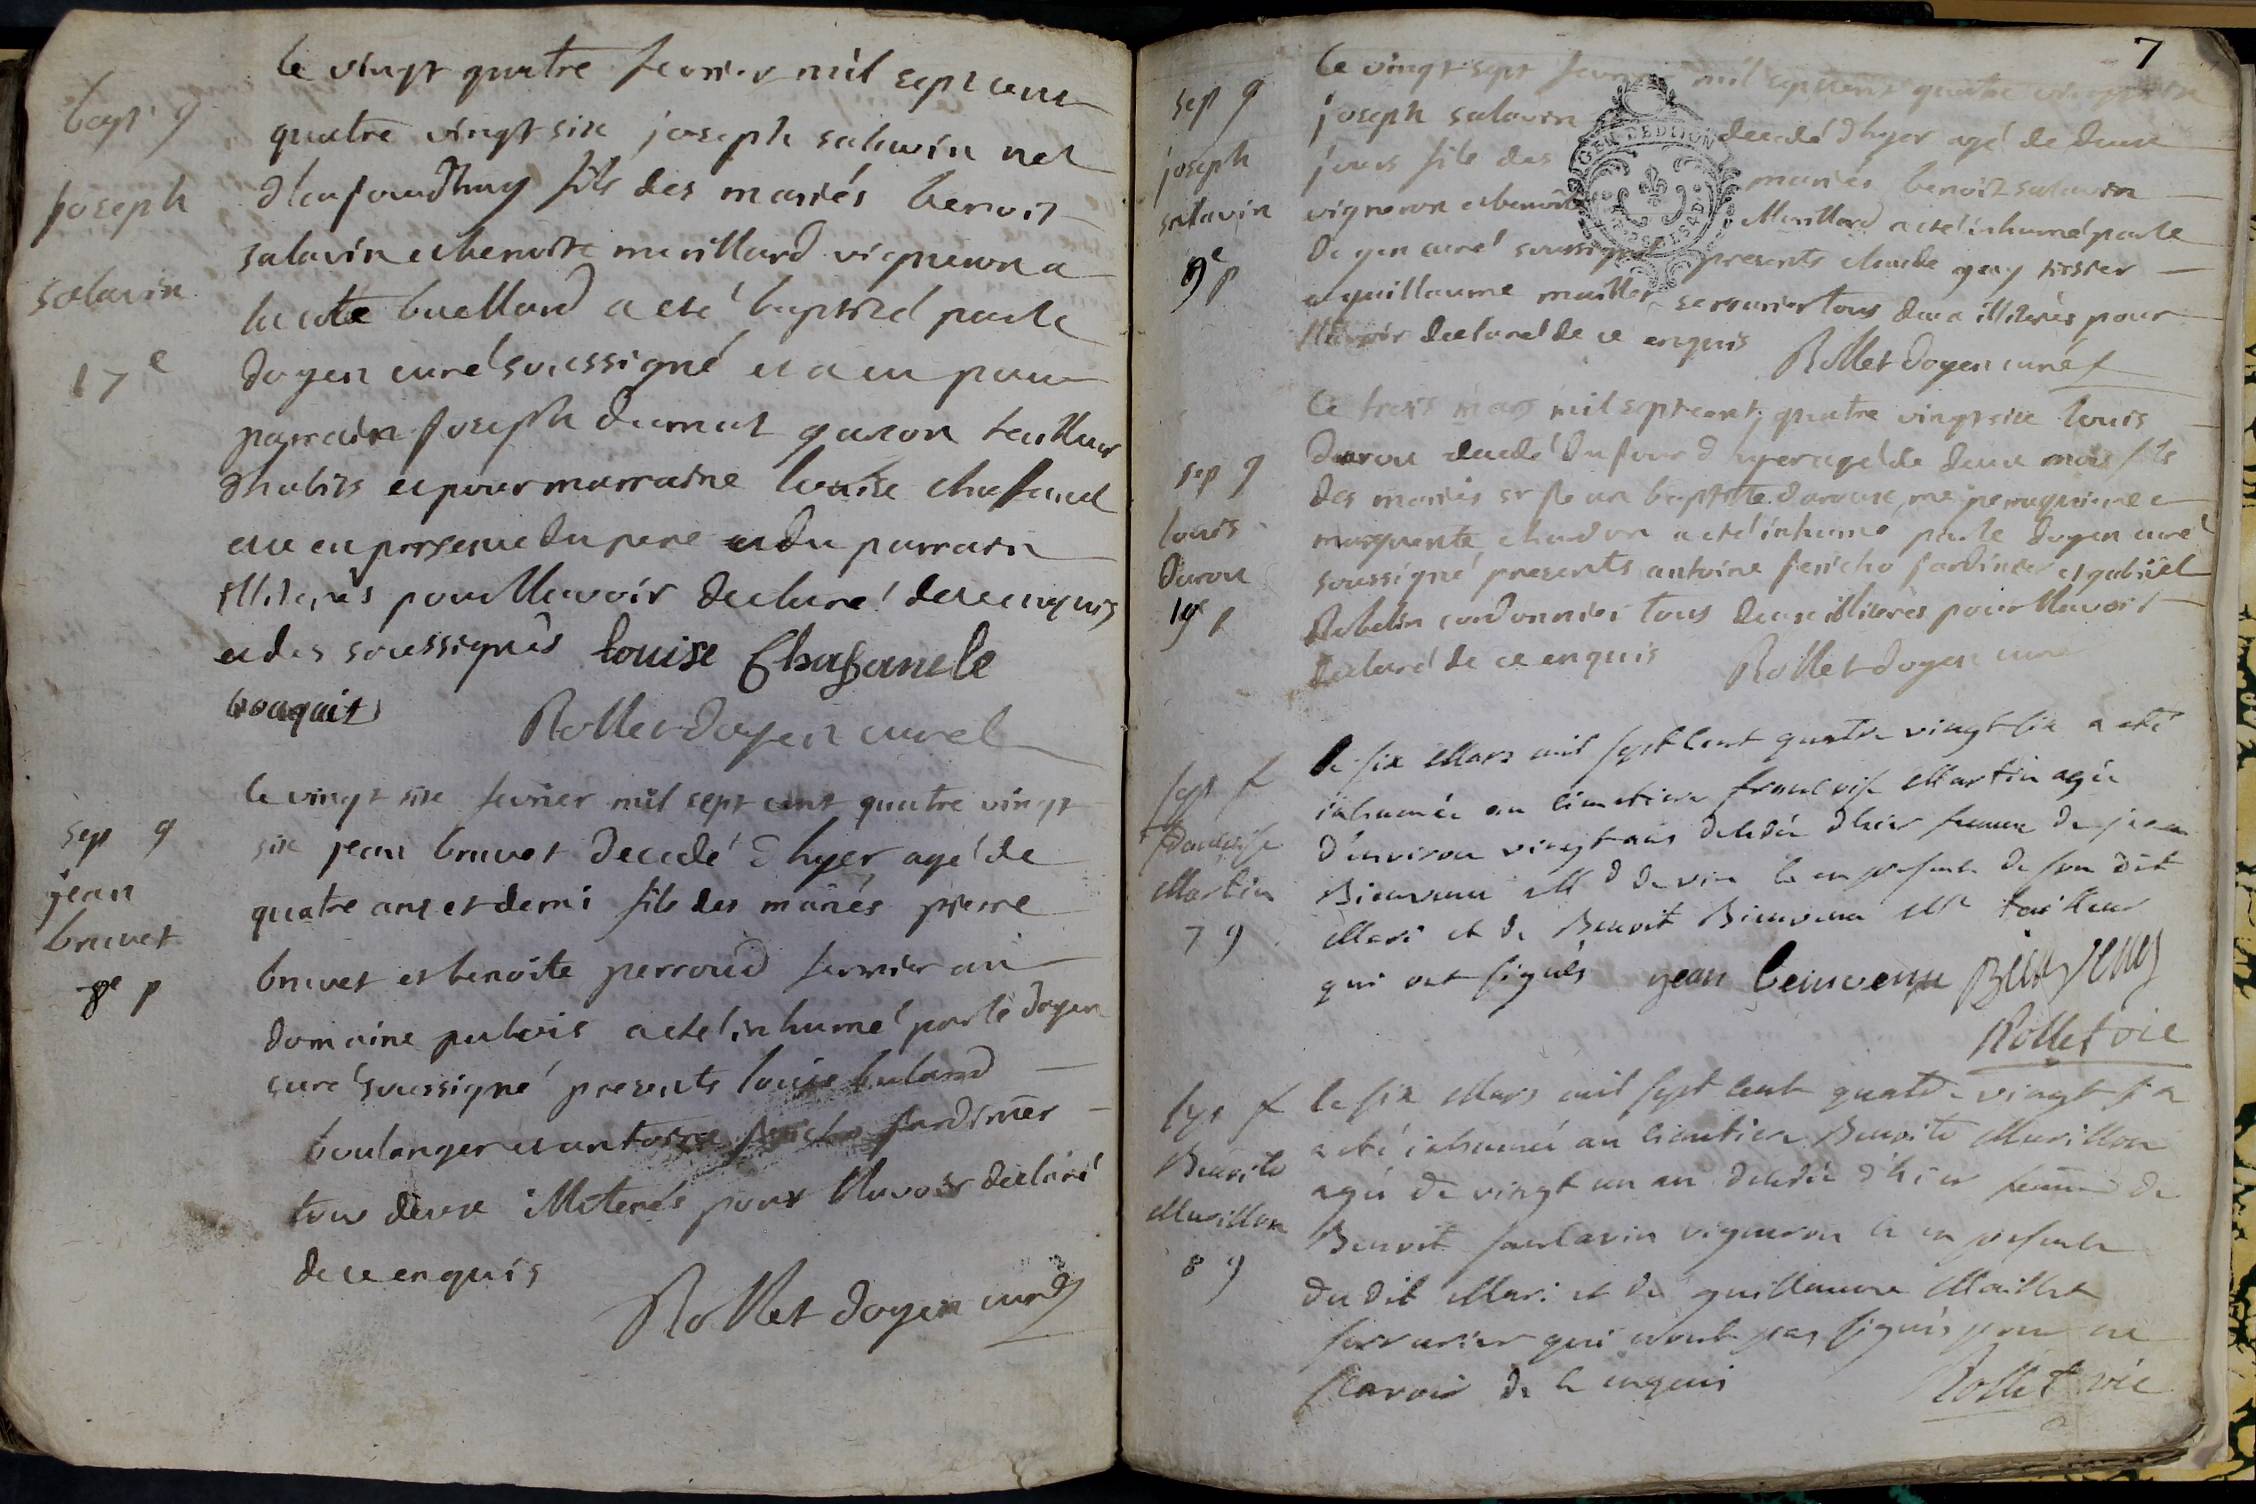 bapt g
joseph
salavin
17e
le vingt quatre fevrier mil sept cent
quatre vingt six joseph salavin nel
d'aujourd'huy fils des mariés benoit
salavin et benoite murillard vigneron a
la cote buellard a eté baptisé par le
doyen curé soussigné et a eu pour
parrain joseph dumat garcon tailleur
d'habits et pour marraine louise chasanel
ete en presence du pere et du parrain
illiterés pour l'avoir declaré de ce enquis
et des soussignés louise Chasanele
bouquit
Rollet doyen curé
sep g
jean
bruvet
8e p
le vingt six fevrier mil sept cent quatre vingt
six jean bruvet decedé d'hyer agé de
quatre ans et demi fils des mariés pierre
bruvet et benoite perroud fermier au
domaine putois a eté inhumé par le doyen
curé soussigné presents louis buland
boulanger et antoine jericho jardinier
tous deux illiterés pour l'avoir declaré
de ce enquis
Rollet doyen curé
7
sep g
joseph
salavin
9e p
le vingt sept fevrier mil sept cent quatre vingt six
joseph salavin decedé d'hyer agé de deux
jours fils des mariés benoit salavin
vigneron et benoite Murillard a eté inhumé par le
doyen curé soussigné presents claude gay tissier
et guillaume maillet serrurier tous deux illiterés pour
l'avoir declaré de ce enquis
Rollet doyen curé
sep g
louis
Darou
10e p
le trois mars mil sept cent quatre vingt six louis
Darou decedé du jour d'hyer agé de deux mois fils
des mariés sr jean baptiste daroux me perruquier et
marguerite chardon a eté inhumé par le doyen curé
soussigné presents antoine jericho jardinier et gabriel
Rebelin cordonnier tous deux illiterés pour l'avoir
declaré de ce enquis
Rollet doyen curé
sep f
francoise
Martin
7 g
le six Mars mil sept cent quatre vingt six a eté
inhumée au cimetiere francoise Martin agée
d'environ vingt ans decedée d'hier femme de jean
Bienvenu Md de vin ce en presence de son dit
Mari et de Benoit Bienvenu Me tailleur
qui ont signés jean beinvenu Bienvenu
Rollet vic
sep f
Benoite
Murillon
8 g
le six Mars mil sept cent quatre vingt six
a eté inhumée au cimetiere Benoite Murillon
agée de vingt un an decedée d'hier femme de
Benoit saulavin vigneron ce en presence
du dit Mari et de guillaume Maillet
serrurier qui n'ont pas signés pour ne
scavoir de ce enquis
Rollet vic